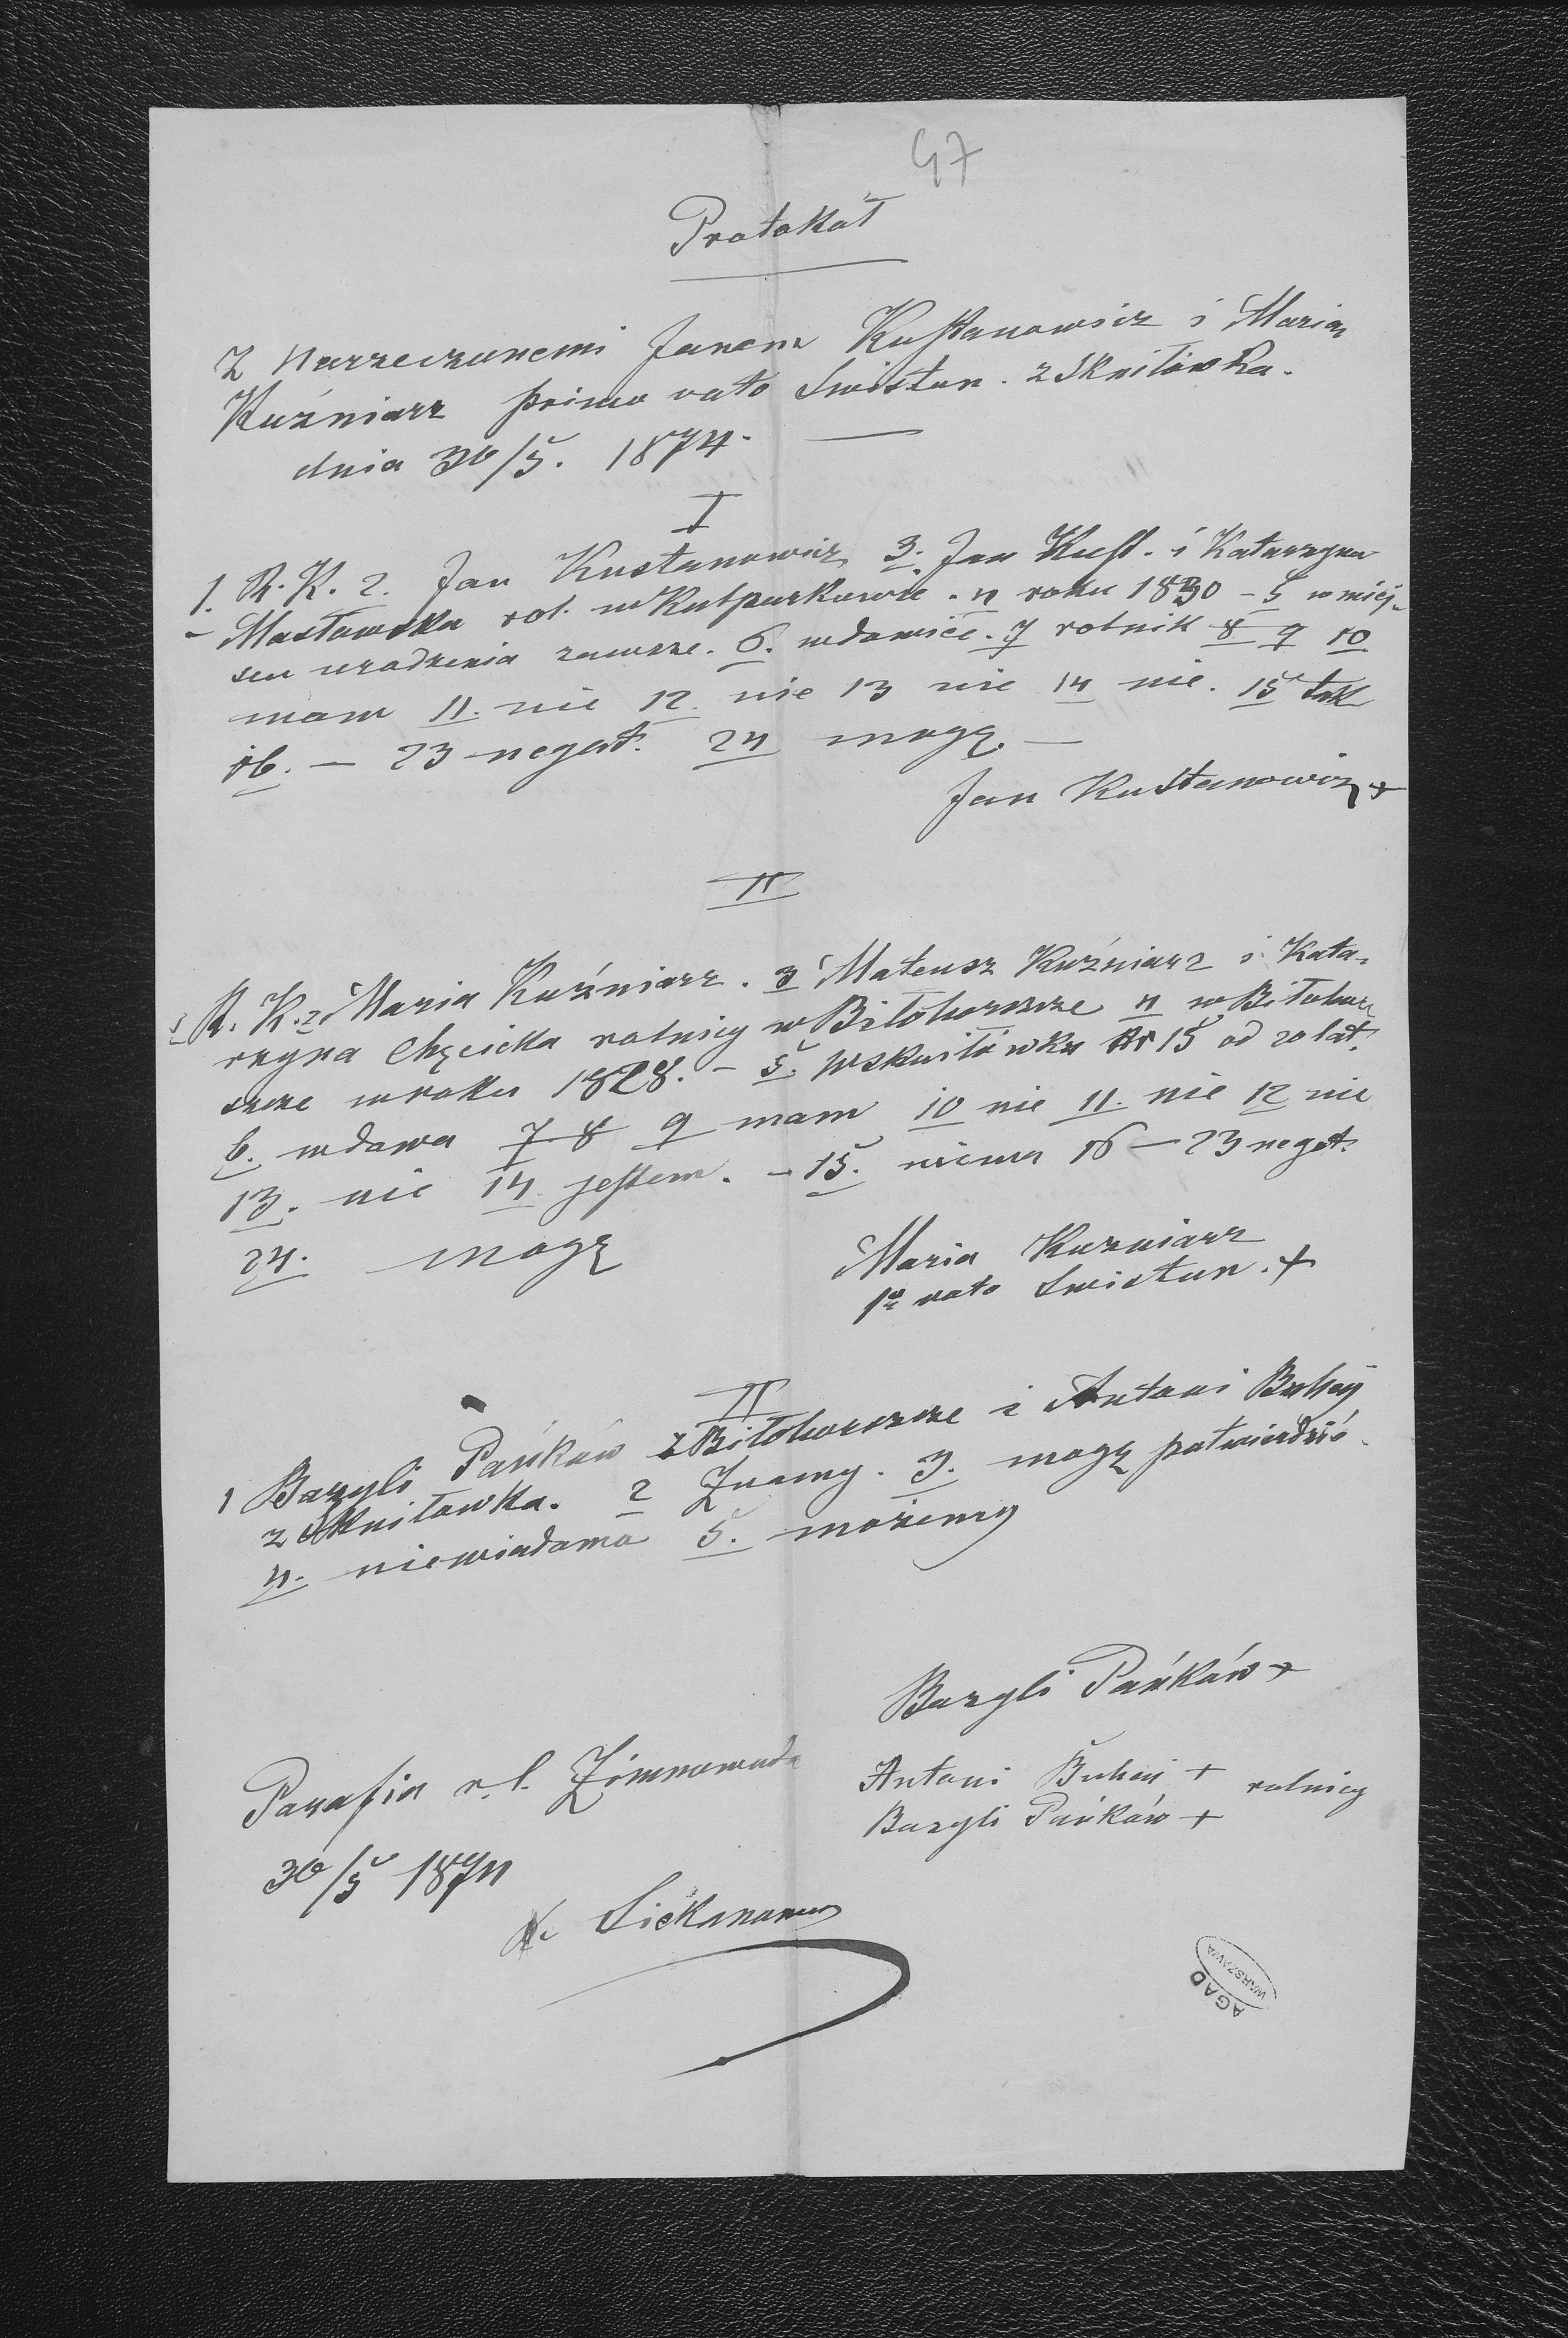 47
Protokół
Z Narzeczonemi Janem Kustanowicz i Maria
Kuźniarz primo voto Swistun. z Skniłówka.
dnia 30/5. 1874.
I
1. R. K. 2. Jan Kustanowicz 3. Jan Kust. i Katarzyna
Masłowska rol. w Kulparkowie. 4 roku 1830 - 5 w miej-
scu urodzenia zawsze. 6. wdowiec. 7 rolnik 8 9 10
mam 11. nie 12. nie 13 nie 14 nie. 15 tak
16. — 23 negat. 24 mogę. —
Jan Kustanowicz +
II
1 R. K. 2 Maria Kuźniarz. 3 Mateusz Kuźniarz i Kata-
rzyna Chęcicka rolnicy w Biłohorszcze 4 w Biłohor
szcze w roku 1828. - 5. w Skniłówku Nr 15 od 20 lat.
6. wdowa 7 8 9 mam 10 nie 11. nie 12 nie
13. nie 14 jestem. - 15. niema 16 — 23 negat.
24. mogę
Maria Kuzniarz
1o voto Swistun. +
II
1 Bazyli Pańków z Biłohorszcze i Antoni Buhej
z Skniłówka. 2 Znamy. 3. mogę potwierdzić.
4. niewiadomo 5. możemy
Bazyli Pańków +
Parafia r. l. Zimnowoda
Antoni Buhej + rolnicy
Bazyli Pańków +
30/5 1874
AGAD
WARSZAWA